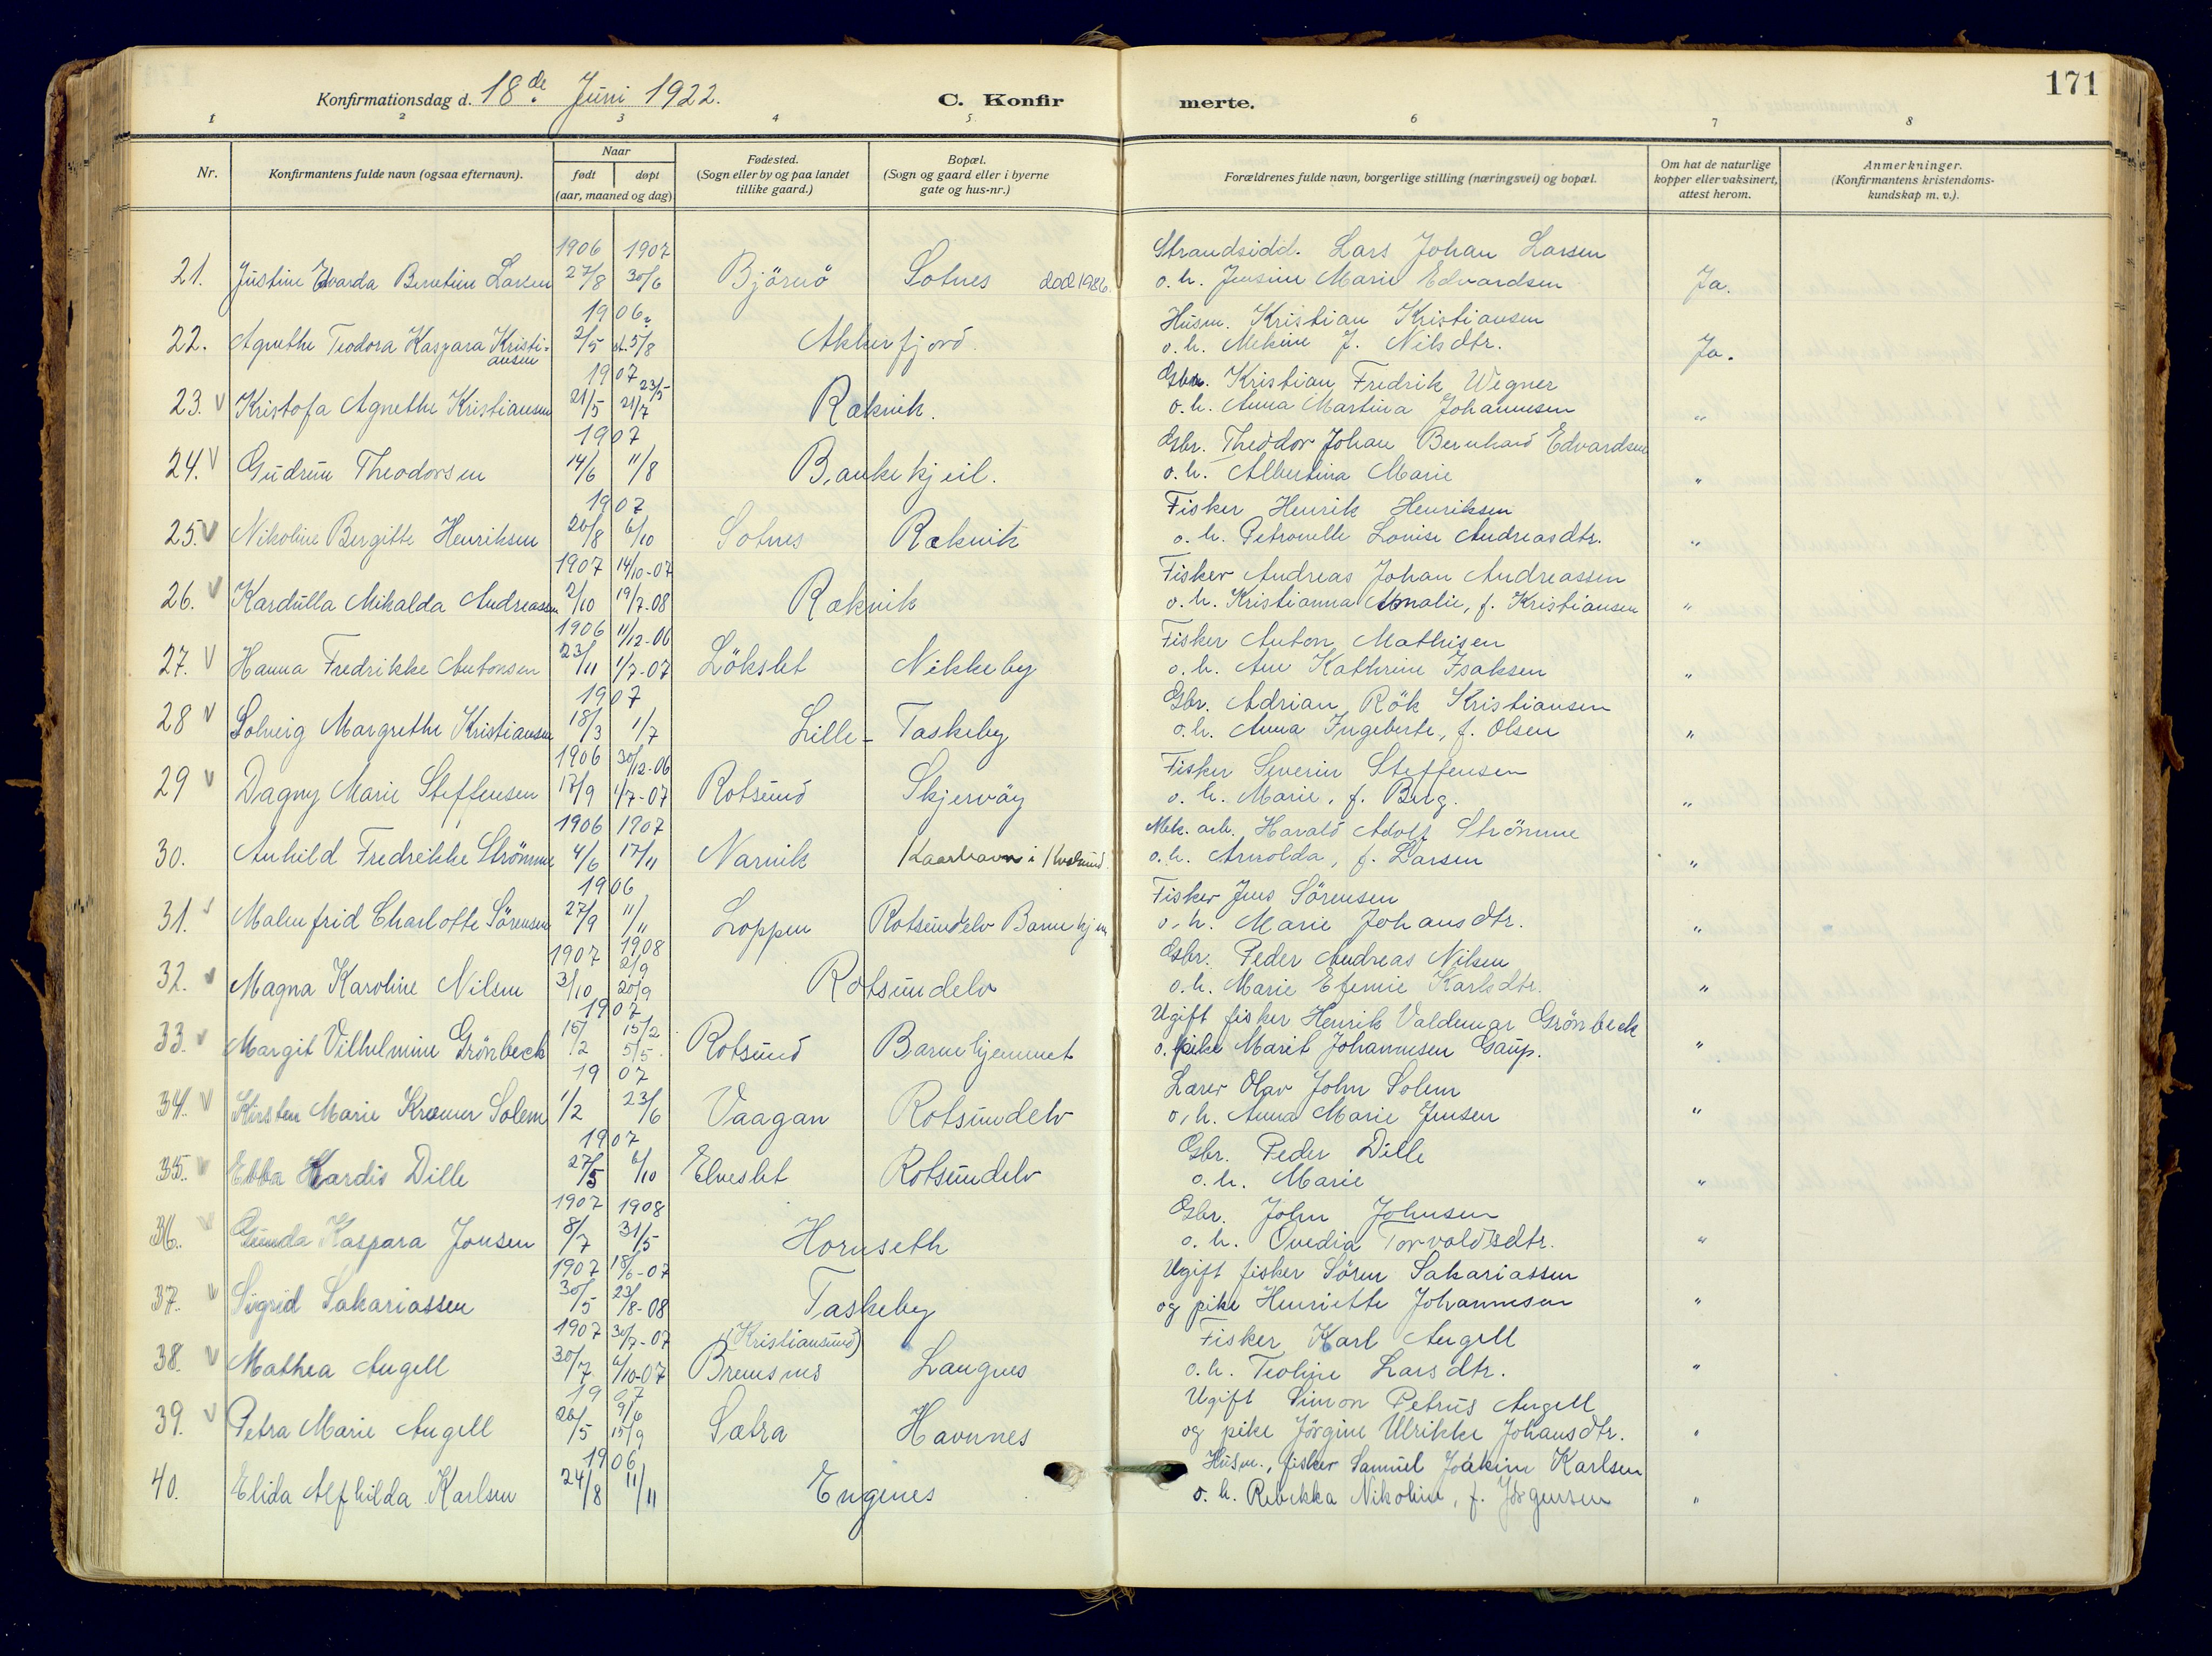 171
Konfirmationsdag d. 18de Juni 1922.
C. Konfirmerte.
1 2 3 4 5 6 7 8
Nr. Konfirmantens fulde navn (ogsaa efternavn). Naar født døpt (aar, maaned og dag) Fødested. (Sogn eller by og paa landet tillike gaard.) Bopæl. (Sogn og gaard eller i byerne gate og hus-nr.) Forældrenes fulde navn, borgerlige stilling (næringsvei) og bopæl. Om hat de naturlige kopper eller vaksinert, attest herom. Anmerkninger. (Konfirmantens kristendomskundskap m. v.).
1906 1907 Strandsidd. Lars Johan Larsen
21. Justine Edvarda Berntine Larsen 27/8 30/6 Björnö Sotnes död 1986. o. h. Jensine Marie Edvardsen Ja.
1906 Husm. Kristian Kristiansen
22. Agnethe Teodora Kaspara Kristiansen 2/5 5/8 Akkerfjord o. h. Mekine J. Nilsdtr. Ja.
1907 23/5 Gbr. Kristian Fredrik Wegner
23. V Kristofa Agnethe Kristiansen 21/5 21/7 Rakvik. o. h. Anna Martina Johannesen "
1907 Gbr. Theodor Johan Bernhard Edvardsen
24. V Gudrun Theodorsen 14/6 11/8 Bankekjeil. o. h. Albertina Marie "
1907 Fisker Henrik Henriksen
25. V Nikoline Bergitte Henriksen 20/8 6/10 Sotnes Rakvik o. h. Petronelle Louise Andreasdtr. "
1907 14/10-07 Fisker Andreas Johan Andreassen
26. V Kardulla Mikalda Andreassen 2/10 19/7-08 Rakvik o. h. Kristianna Amalie, f. Kristiansen "
1906 11/12-06 Fisker Anton Mathisen
27. V Hanna Fredrikke Antonsen 23/11 1/7-07 Lökslet Nikkeby o. h. Ane Kathrine Isaksen "
1907 Gbr. Adrian Rök Kristiansen
28 V Solveig Margrethe Kristiansen 18/3 1/7 Lille-Taskeby o. h. Anna Ingeberte, f. Olsen "
1906 30/12-06 Fisker Severin Steffensen
29 V Dagny Marie Steffensen 17/9 1/7-07 Rotsund Skjervöy o. h. Marie, f. Berg. "
1906 1907 Mek. arb. Harald Adolf Strömme
30. Anhild Fredrikke Strömme 4/6 17/11 Narvik Kaarhavn i Kvalsund o. h. Arnolda, f. Larsen "
1906 Fisker Jens Sörensen
31. V Malmfrid Charlotte Sörensen 27/9 11/11 Loppen Rotsundelv Barnehjem o. h. Marie Johansdtr. "
1907 1908 Gbr. Peder Andreas Nilsen
32. V Magna Karoline Nilsen 3/10 2/9 20/9 Rotsundelv o. h. Marie Efemie Karlsdtr. "
1907 Ugift fisker Henrik Valdemar Grönbeck
33. V Margit Vilhelmine Grönbeck 15/2 15/2 5/5. Rotsund Barnehjemmet o. pike Marit Johannesen Gaup. "
1907 Lærer Olav John Solem
34. V Kirsten Marie Kræmer Solem 1/2 23/6 Vaagan Rotsundelv o. h. Anna Marie Jensen "
1907 Gbr. Peder Dille
35. V Ebba Hardis Dille 27/5 6/10 Elveslet Rotsundelv o. h. Marie "
1907 1908 Gbr. John Johnsen
36. V Gunda Kaspara Jonsen 8/7 31/5 Hornseth o. h. Ovedia Torvaldsdtr. "
1907 18/6-07 Ugift fisker Sören Sakariassen
37. V Sigrid Sakariassen 30/5 23/8-08 Taskeby og pike Henriette Johannesen "
1907 30/7-07 (Kristiansund) Fisker Karl Angell
38. V Mathea Angell 30/7 6/10-07 Bremsnes Langnes o. h. Teoline Larsdtr. "
1907 9/6 Ugift Simon Petrus Angell
39. V Petra Marie Angell 26/5 15/9 Sætra Havnnes og pike Jörgine Ulrikke Johansdtr. "
1906 Husm., fisker Samuel Joakim Karlsen
40. Elida Alfhilda Karlsen 24/8 11/11 Engenes o. h. Rebekka Nikoline, f. Jörgensen "